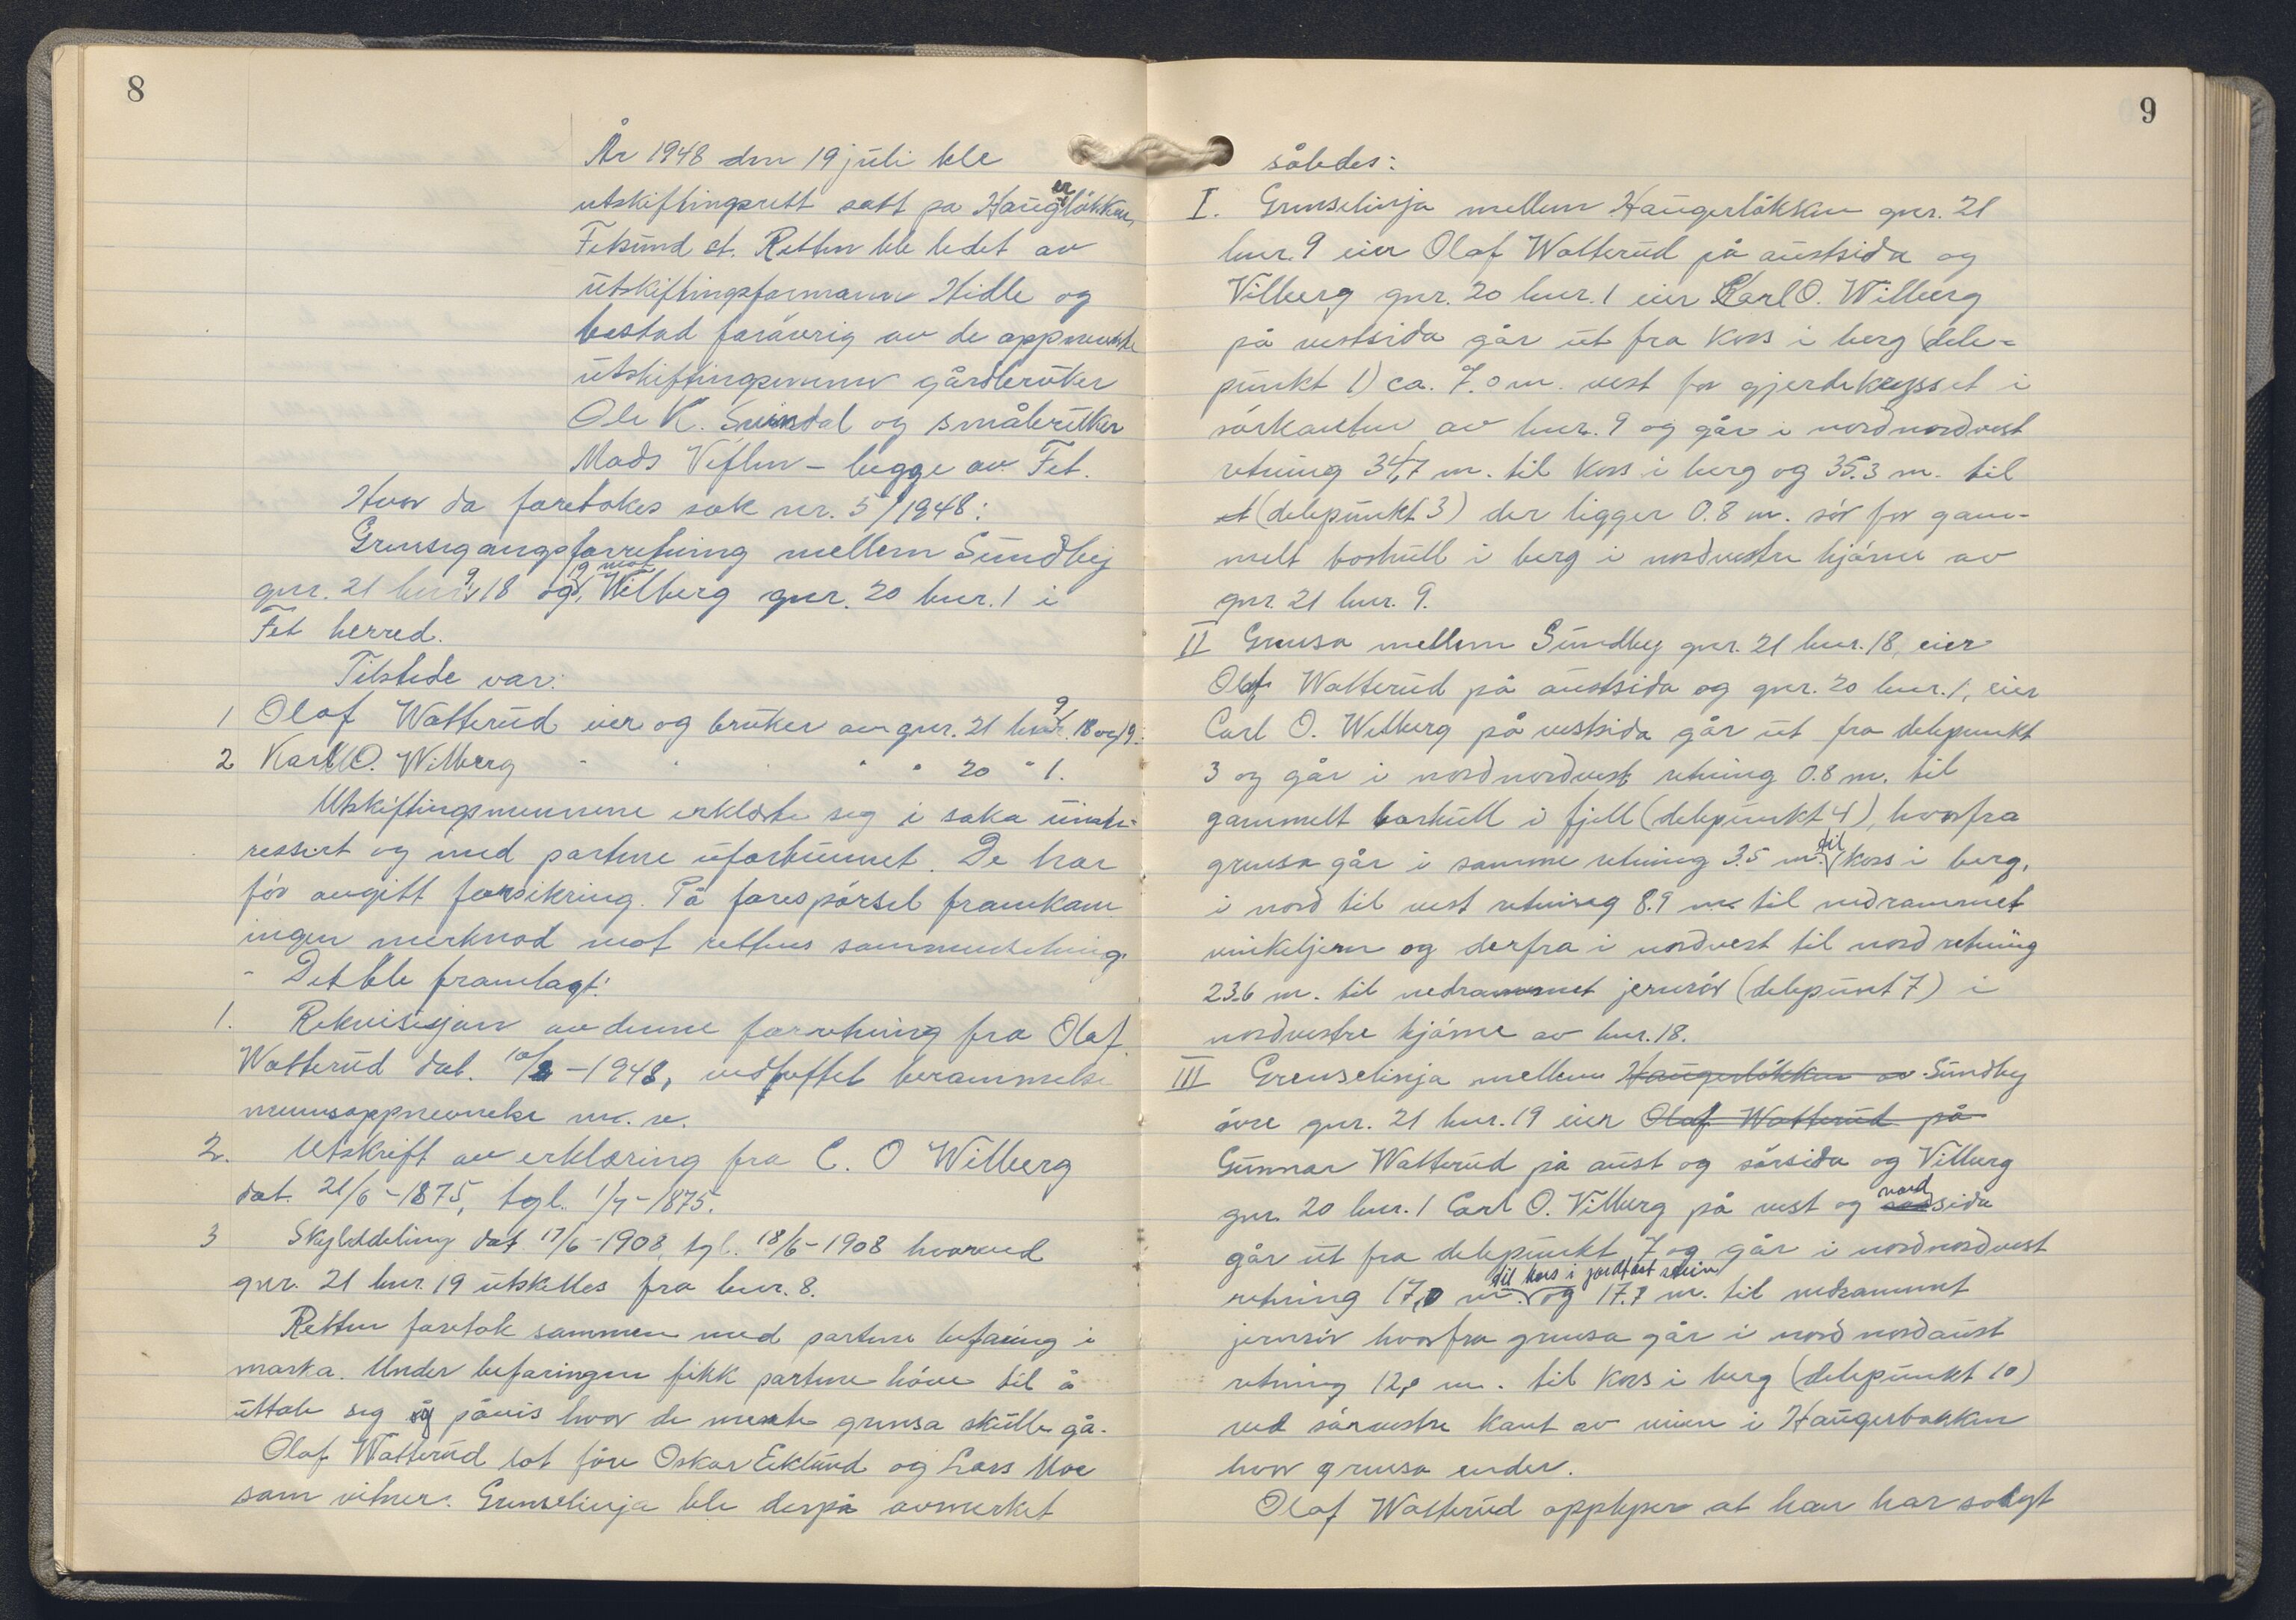 8
År 1948 den 19 juli ble
utskiftingsrett satt på Haugerløkken,
Fetsund st. Retten ble ledet av
utskiftingsformann Hidle og
bestod forøvrig av de oppnevnte
utskiftingsmenn gårdbruker
Ole K. Svindal og småbruker
Mads Vestlen – begge av Fet.
Hvor da foretokes sak nr. 5/1948:
Grensegangsforretning mellem Sundby
gnr. 21 bnr. 9, 18 og 19 mot Wilberg gnr. 20 bnr. 1 i
Fet herred.
Tilstede var:
1 Olaf Watterud eier og bruker av gnr. 21 bnr. 9, 18 og 19.
2 Karl O. Wilberg " " " " " 20 " 1.
Utskiftingsmennene erklærte seg i saka uinte-
ressert og med partene uforbunnet. De har
før avgitt forsikring. På forespørsel framkom
ingen merknad mot rettens sammensetning.
- Det ble framlagt:
1. Rekvisisjon av denne forretning fra Olaf
Watterud dat. 10/2-1948, vedheftet berammelse
mennsoppnevnelse m. v.
2. Utskrift av erklæring fra C. O Wilberg
dat. 21/6-1875, tgl. 1/7-1875.
3 Skylddeling dat. 17/6-1908, tgl. 18/6-1908 hvorved
gnr. 21 bnr. 19 utskilles fra bnr. 8.
Retten foretok sammen med partene befaring i
marka. Under befaringen fikk partene høve til å
uttale seg og påvis hvor de mente grensa skulle gå.
Olaf Watterud lot føre Oskar Eklund og Lars Moe
som vitner. Grenselinja ble derpå avmerket
9
således:
I. Grenselinja mellem Haugerløkken gnr. 21
bnr. 9 eier Olaf Watterud på austsida og
Vilberg gnr. 20 bnr. 1 eier Carl O. Wilberg
på vestsida går ut fra kors i berg (dele-
punkt 1) ca. 7.0 m. vest for gjerdekrysset i
sørkanten av bnr. 9 og går i nordnordvest
retning 34,7 m. til kors i berg og 35.3 m. til
et (delepunkt 3) der ligger 0.8 m. sør for gam-
melt borhull i berg i nordvestre hjørne av
gnr. 21 bnr. 9.
II Grensa mellem Sundby gnr. 21 bnr. 18, eier
Olaf Watterud på austsida og gnr. 20 bnr. 1, eier
Carl O. Wilberg på vestsida går ut fra delepunkt
3 og går i nordnordvest retning 0.8 m. til
gammelt borhull i fjell (delepunkt 4), hvorfra
grensa går i samme retning 3.5 m. til kors i berg,
i nord til vest retning 8.9 m. til nedrammet
vinkeljern og derfra i nordvest til nord retning
23.6 m. til nedrammet jernrør (delepunt 7) i
nordvestre hjørne av bnr. 18.
III Grenselinja mellem Haugerløkken av Sundby
øvre gnr. 21 bnr. 19 eier Olaf Watterud på
Gunnar Watterud på aust og sørsida og Vilberg
gnr. 20 bnr. 1 Carl O. Vilberg på vest og nordsida
går ut fra delepunkt 7 og går i nordnordvest
retning 17,0 m. til kors i jordfast stein og 17.7 m. til nedrammet
jernrør hvorfra grensa går i nord nordaust
retning 12,0 m. til kors i berg (delepunkt 10)
ved sørvestre kant av veien i Haugerbakken
hvor grensa ender.
Olaf Watterud opplyser at han har solgt